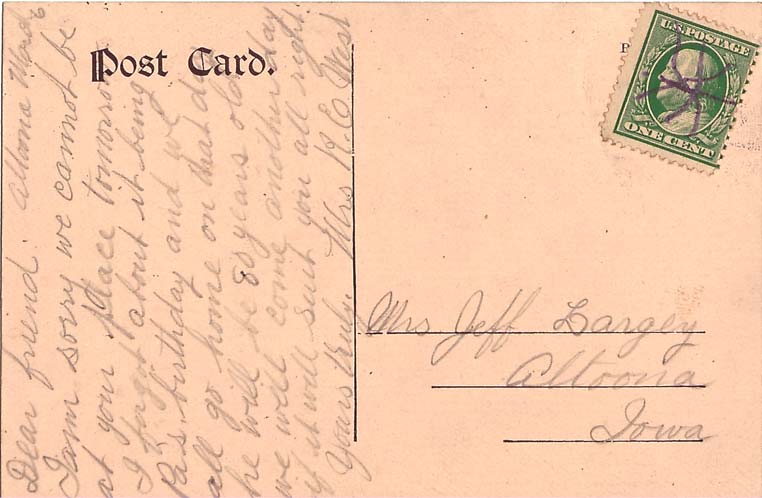 Post Card.
U.S. POSTAGE
ONE CENT
Dear friend. Altoona
I am sorry we cannot be
at your place tomorrow
I forgot about it being
Pa's birthday and we
all go home on that day
he will be 80 years old
we will come another day
if it will suit you all right.
Yours truly Mrs R. E. West
Mrs Jeff Largey
Altoona
Iowa